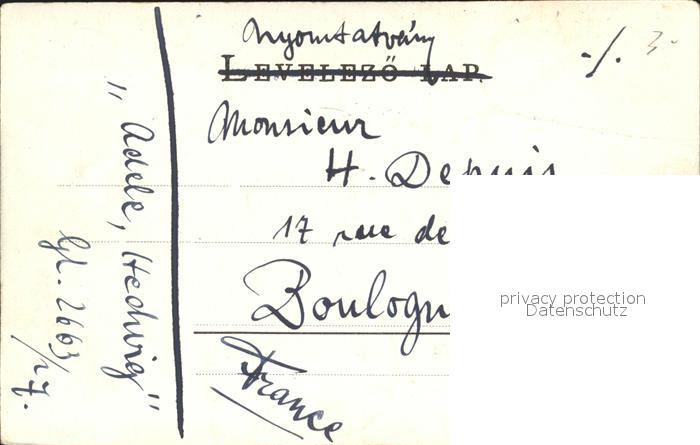 Nyomtatvány
LEVELEZŐ LAP.
-/. 3-
Monsieur
H. Depuis
17 rue de
Boulogn
France
" Adele, Hedwig "
gl. 2663/27.
privacy protection
Datenschutz